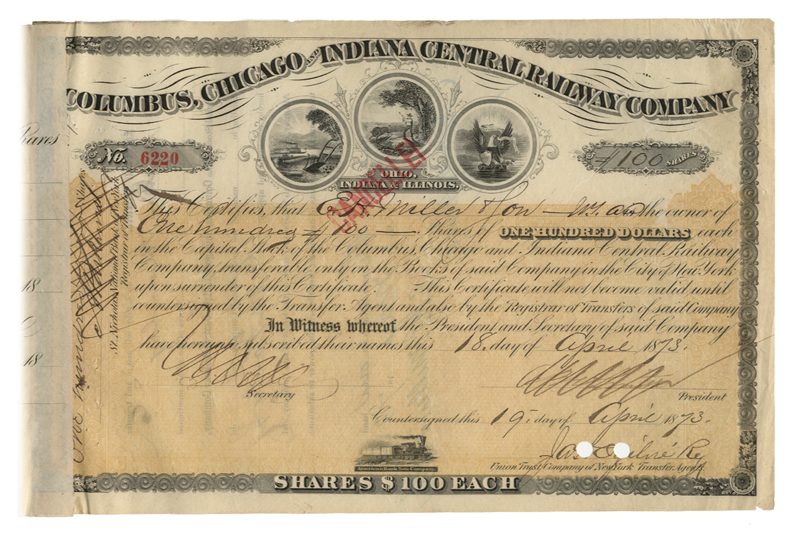 COLUMBUS, CHICAGO AND INDIANA CENTRAL RAILWAY COMPANY
No. 6220
100 SHARES
CANCELLED
OHIO,
INDIANA & ILLINOIS.
This Certifies, that Miller & Son are the owner of
One hundred 100 Shares of ONE HUNDRED DOLLARS each
in the Capital Stock of the Columbus, Chicago and Indiana Central Railway
Company, transferable only on the Books of said Company in the City of New York
upon surrender of this Certificate. This Certificate will not become valid until
countersigned by the Transfer Agent and also by the Registrar of Transfers of said Company
In Witness whereof the President and Secretary of said Company
have hereunto subscribed their names this 18. day of April 1873.
Secretary
President
Countersigned this 19. day of April 1873.
Union Trust Company of New York Transfer Agent
American Bank Note Company
SHARES $100 EACH
Shares
18
18
St. Nicholas National Bank of New York
Registrar of Transfers